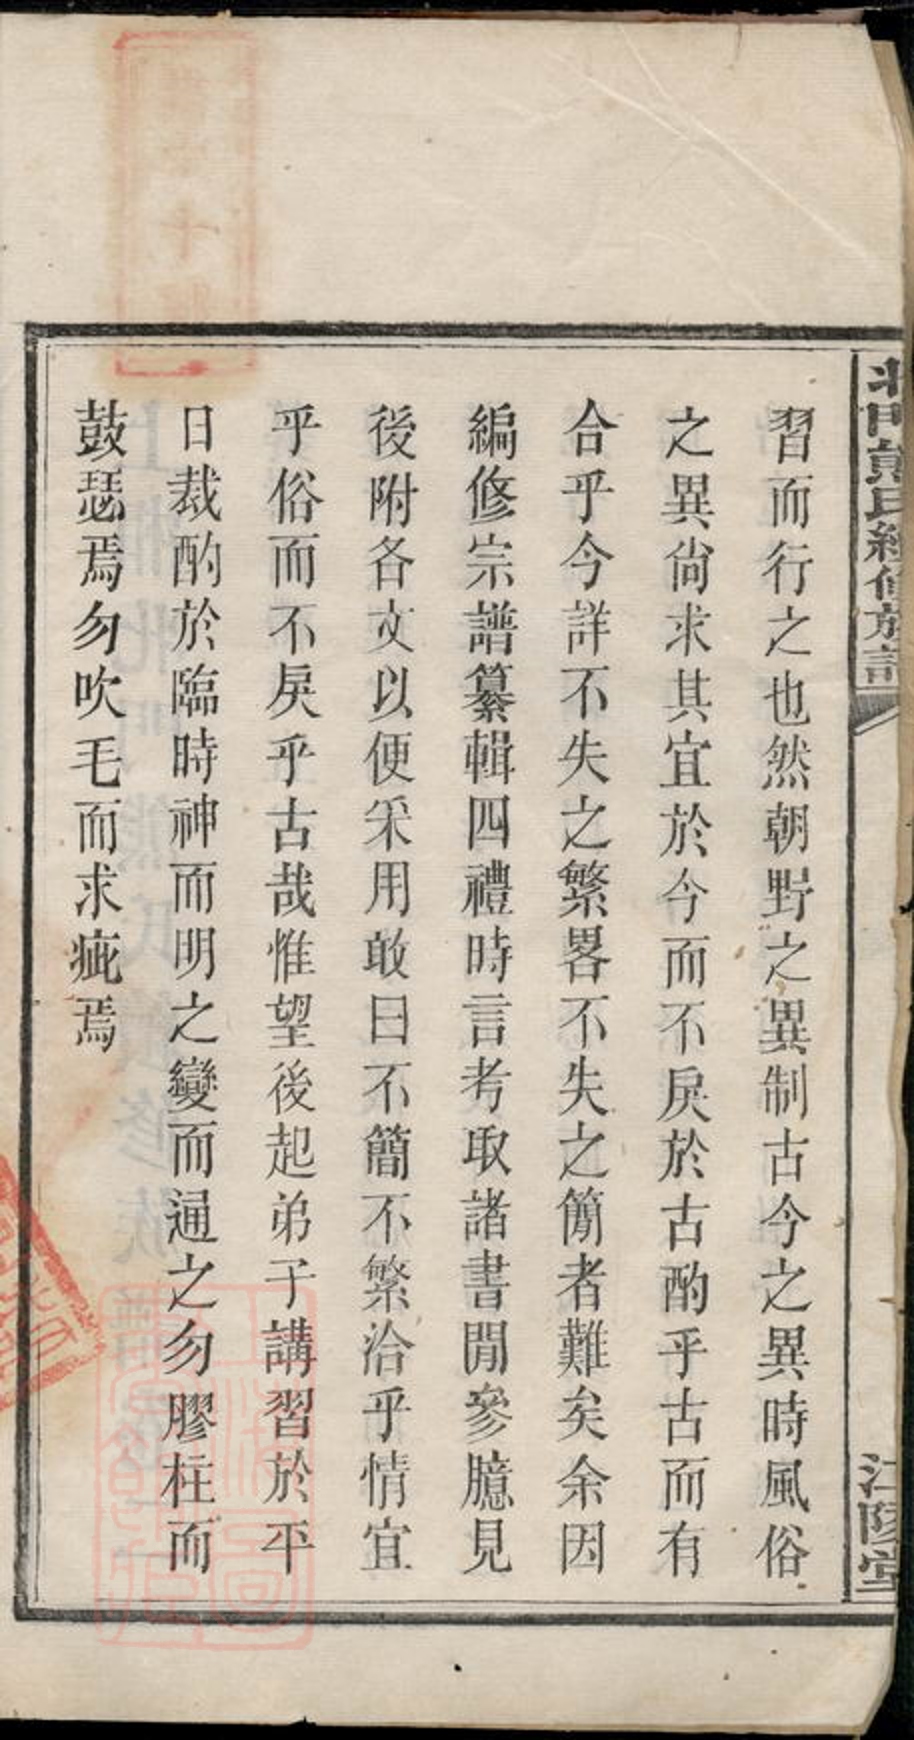 習而行之也然朝野之異制古今之異時風俗
之異尙求其宜於今而不戾於古酌乎古而有
合乎今詳不失之繁畧不失之簡者難矣余因
編修宗譜纂輯四禮時言考取諸書閒參臆見
後附各文以便采用敢曰不簡不繁洽乎情宜
乎俗而不戾乎古哉惟望後起弟子講習於平
日裁酌於臨時神而明之變而通之勿膠柱而
鼓瑟焉勿吹毛而求疵焉
江陵堂